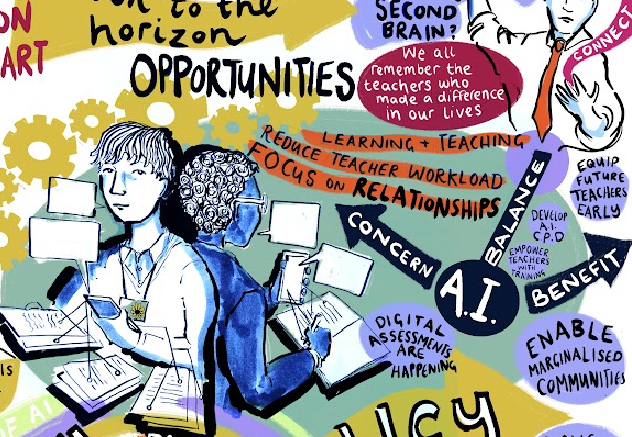 to the
horizon
ON
ART
OPPORTUNITIES
SECOND
BRAIN?
We all
remember the
teachers who
made a difference
in our lives
CONNECT
LEARNING + TEACHING
REDUCE TEACHER WORKLOAD
FOCUS ON RELATIONSHIPS
EQUIP
FUTURE
TEACHERS
EARLY
BALANCE
DEVELOP
A.I.
C.P.D
EMPOWER
TEACHERS
WITH
TRAINING
CONCERN
A.I.
BENEFIT
DIGITAL
ASSESSMENTS
ARE
HAPPENING
ENABLE
MARGINALISED
COMMUNITIES
IS
OF AI